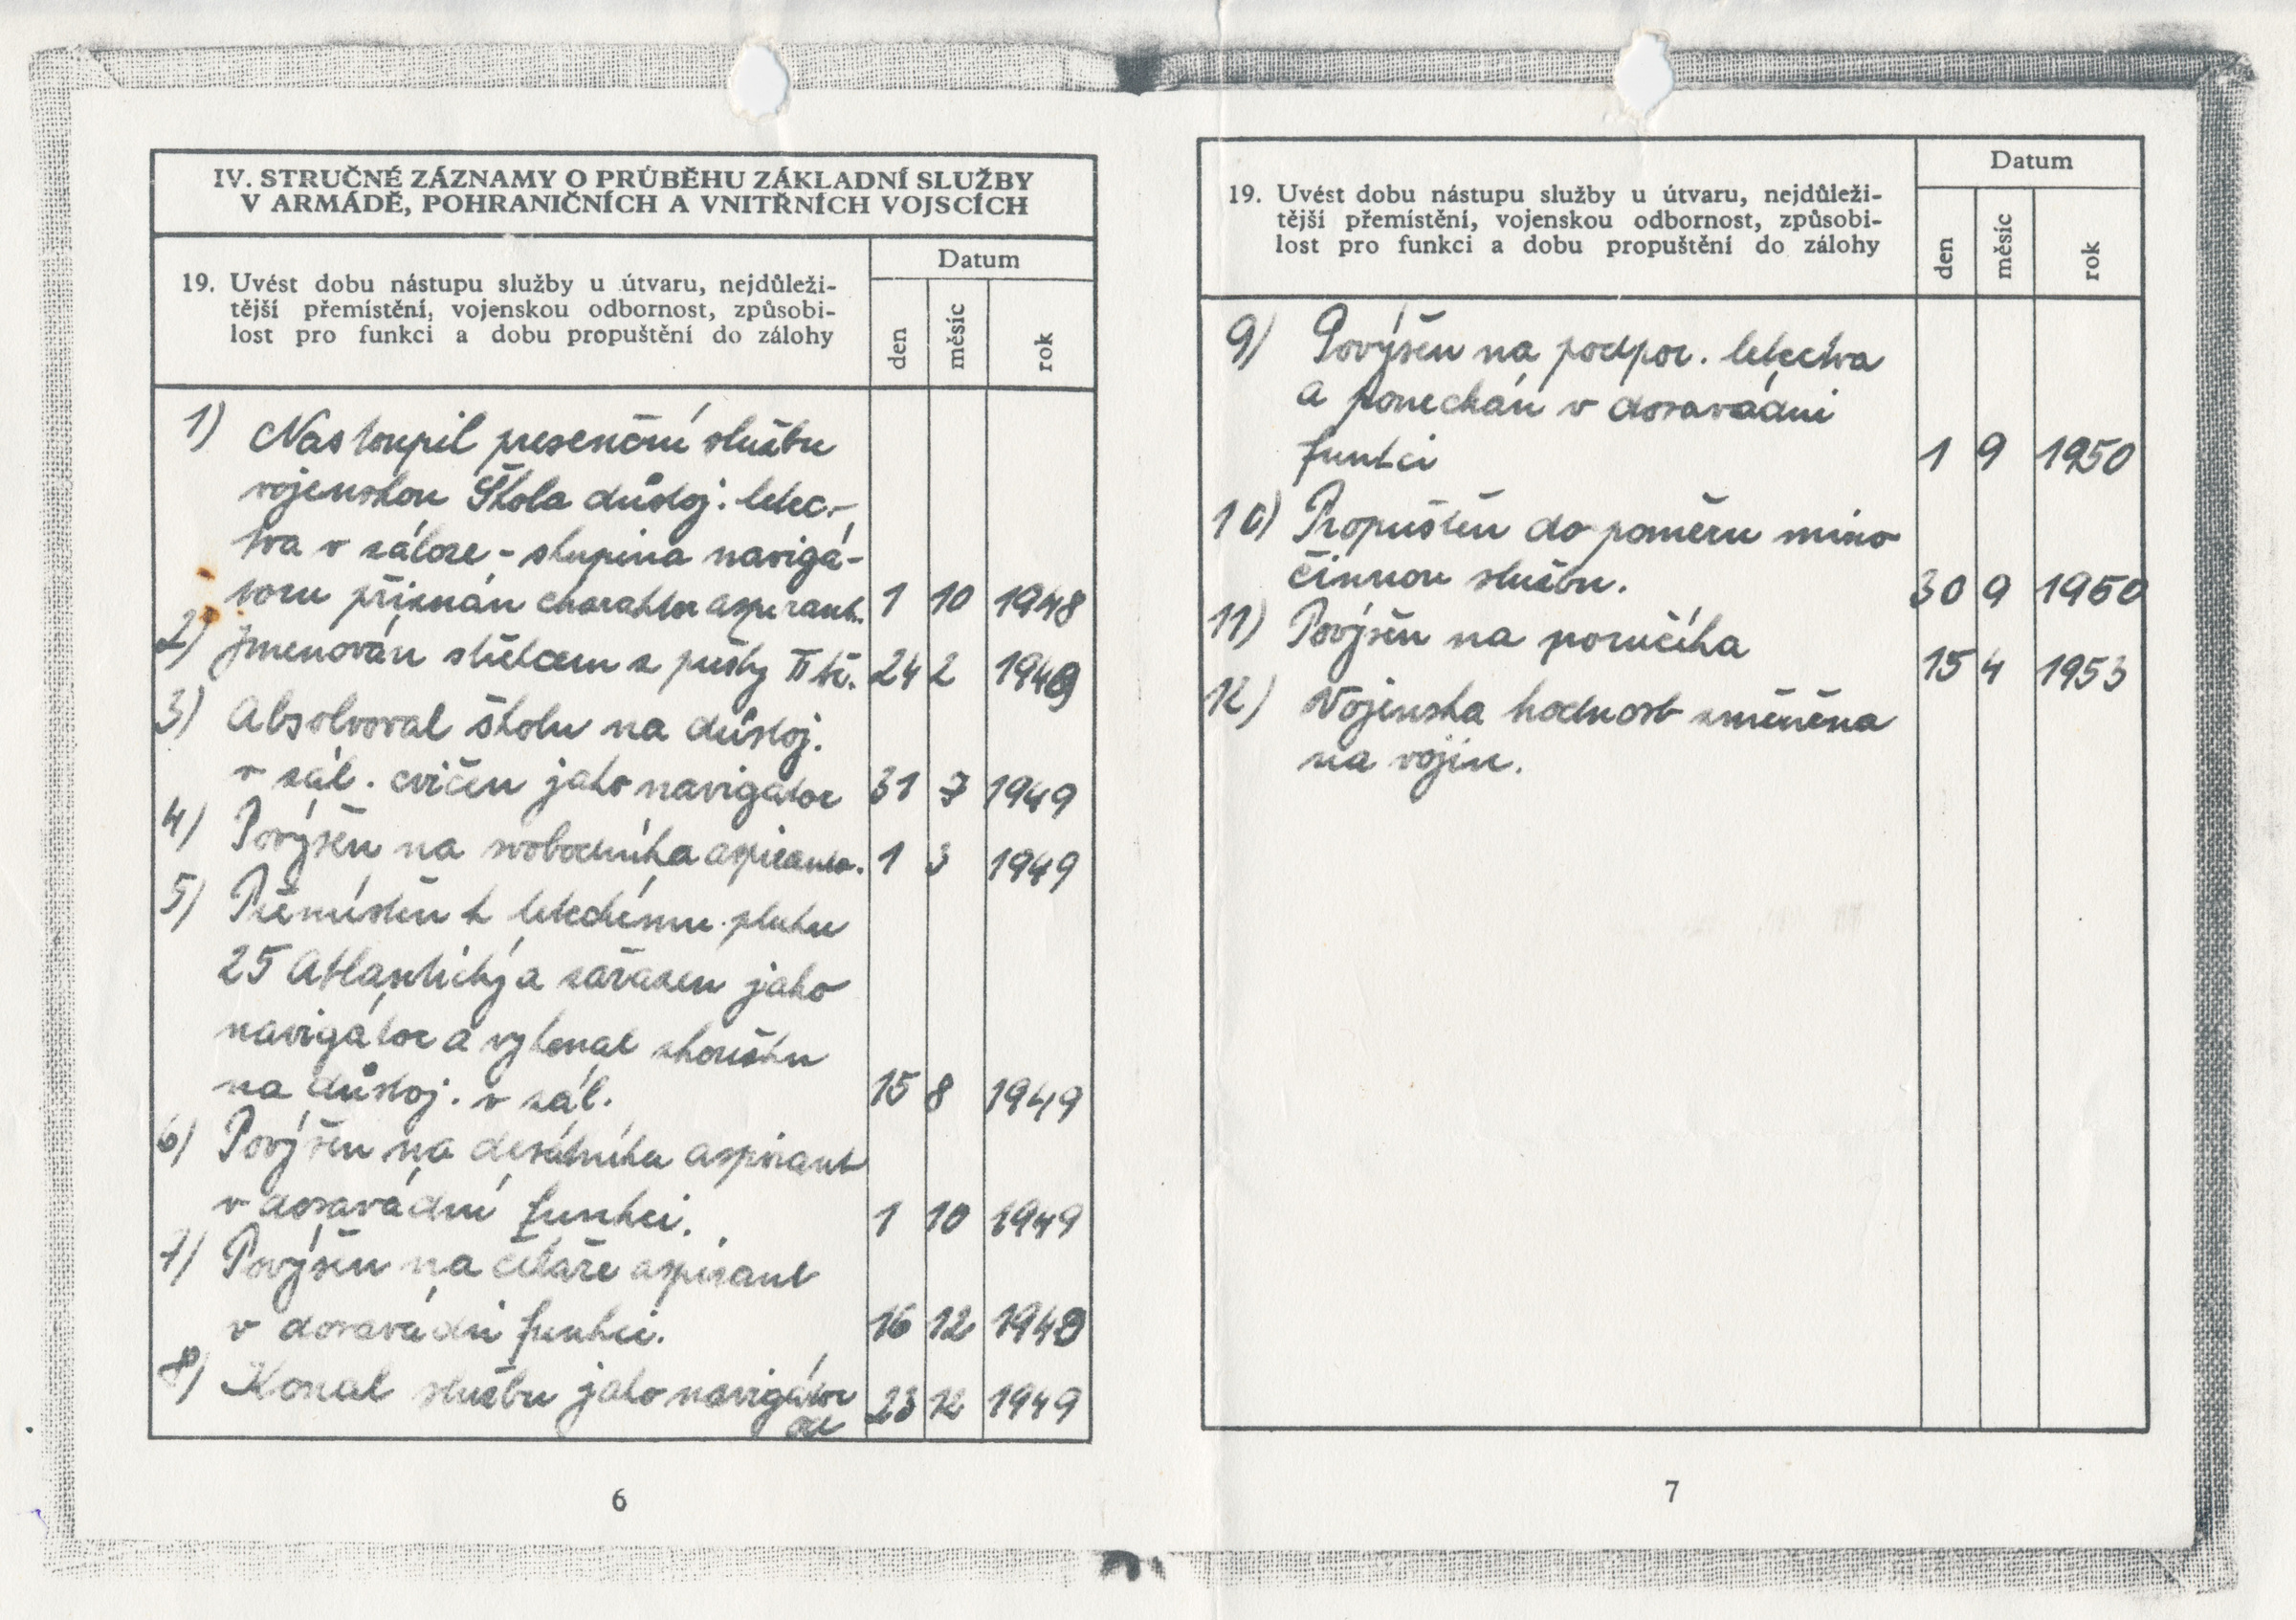 IV. STRUČNÉ ZÁZNAMY O PRŮBĚHU ZÁKLADNÍ SLUŽBY
V ARMÁDĚ, POHRANIČNÍCH A VNITŘNÍCH VOJSCÍCH
19. Uvést dobu nástupu služby u útvaru, nejdůleži-
tější přemístění, vojenskou odbornost, způsobi-
lost pro funkci a dobu propuštění do zálohy
Datum
den měsíc rok
1) Nastoupil presenční službu
vojenskou Škola důstoj. letec-
tva v záloze - skupina navigá-
toru přiznán charakter aspirant. 1 10 1948
2) Jmenován střelcem z pušky II tř. 24 2 1949
3) Absolvoval školu na důstoj.
v zál. cvičen jako navigátor 31 7 1949
4) Povýšen na svobodníka aspiranta. 1 3 1949
5) Přemístěn k leteckému pluku
25 Atlantický a zařazen jako
navigátor a vykonal zkoušku
na důstoj. v zál. 15 8 1949
6) Povýšen na desátníka aspirant
v dosavádní funkci. 1 10 1949
7) Povýšen na četaře aspirant
v dosavádní funkci. 16 12 1949
8) Konal službu jako navigátor
od 23 12 1949
6
19. Uvést dobu nástupu služby u útvaru, nejdůleži-
tější přemístění, vojenskou odbornost, způsobi-
lost pro funkci a dobu propuštění do zálohy
Datum
den měsíc rok
9) Povýšen na podpor. letectva
a ponechán v dosavádní
funkci 1 9 1950
10) Propuštěn do poměru mimo
činnou službu. 30 9 1950
11) Povýšen na poručíka 15 4 1953
12) Vojenska hodnost změněna
na vojín.
7